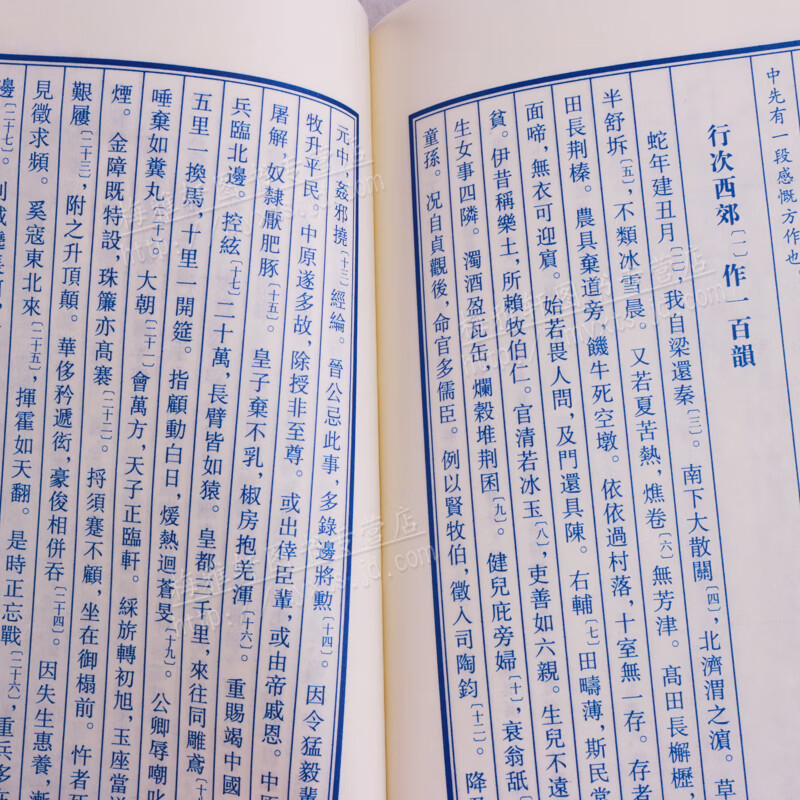 中先有一段感慨方作也
行次西郊〔一〕作一百韻
蛇年建丑月〔二〕,我自梁還秦〔三〕。南下大散關〔四〕,北濟渭之濱。草
半舒坼〔五〕,不類冰雪晨。又若夏苦熱,燋卷〔六〕無芳津。高田長檞櫪,
田長荊榛。農具棄道旁,饑牛死空墩。依依過村落,十室無一存。存者
面啼,無衣可迎賓。始若畏人問,及門還具陳。右輔〔七〕田疇薄,斯民
貧。伊昔稱樂土,所賴牧伯仁。官清若冰玉〔八〕,吏善如六親。生兒不遠
生女事四隣。濁酒盈瓦缶,爛穀堆荊囷〔九〕。健兒庇旁婦〔十〕,衰翁舐
童孫。况自貞觀後,命官多儒臣。例以賢牧伯,徵入司陶鈞〔十二〕。降
元中,姦邪撓〔十三〕經綸。晉公忌此事,多錄邊將勳〔十四〕。因令猛毅輩
牧升平民。中原遂多故,除授非至尊。或出倖臣輩,或由帝戚恩。中
屠解,奴隸厭肥豚〔十五〕。皇子棄不乳,椒房抱羌渾〔十六〕。重賜竭中國
兵臨北邊。控絃〔十七〕二十萬,長臂皆如猿。皇都三千里,來往同雕鳶〔十
五里一換馬,十里一開筵。指顧動白日,煖熱迴蒼旻〔十九〕。公卿辱嘲叱
唾棄如糞丸〔二十〕。大朝〔二十一〕會萬方,天子正臨軒。綵旂轉初旭,玉座當
煙。金障既特設,珠簾亦高褰〔二十二〕。捋須蹇不顧,坐在御榻前。忤者
艱屨〔二十三〕,附之升頂顛。華侈矜遞衒,豪俊相併吞〔二十四〕。因失生惠養,漸
見徵求頻。奚寇東北來〔二十五〕,揮霍如天翻。是時正忘戰〔二十六〕,重兵多
邊〔二十七〕。列城繞長河,